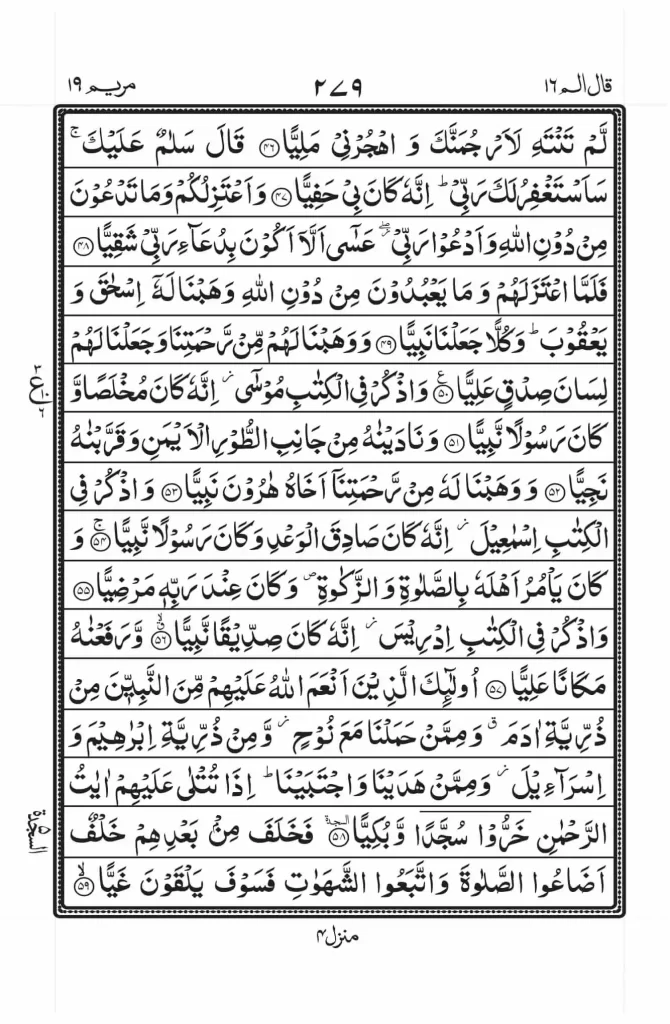 قال الم ١٦
٢٧٩
مريم ١٩
لَّمْ تَنْتَهِ لَاَرْجُمَنَّكَ وَ اهْجُرْنِيْ مَلِيًّا ﴿۴۶﴾ قَالَ سَلٰمٌ عَلَيْكَ ۚ
سَاَسْتَغْفِرُ لَكَ رَبِّيْ ؕ اِنَّهٗ كَانَ بِيْ حَفِيًّا ﴿۴۷﴾ وَ اَعْتَزِلُكُمْ وَ مَا تَدْعُوْنَ
مِنْ دُوْنِ اللّٰهِ وَ اَدْعُوْا رَبِّيْ ۖ٘ عَسٰۤى اَلَّاۤ اَكُوْنَ بِدُعَآءِ رَبِّيْ شَقِيًّا ﴿۴۸﴾
فَلَمَّا اعْتَزَلَهُمْ وَ مَا يَعْبُدُوْنَ مِنْ دُوْنِ اللّٰهِ وَهَبْنَا لَهٗۤ اِسْحٰقَ وَ
يَعْقُوْبَ ؕ وَ كُلًّا جَعَلْنَا نَبِيًّا ﴿۴۹﴾ وَ وَهَبْنَا لَهُمْ مِّنْ رَّحْمَتِنَا وَ جَعَلْنَا لَهُمْ
لِسَانَ صِدْقٍ عَلِيًّا ﴿۵۰﴾ ع وَ اذْكُرْ فِي الْكِتٰبِ مُوْسٰۤى ؗ اِنَّهٗ كَانَ مُخْلَصًا وَّ
كَانَ رَسُوْلًا نَّبِيًّا ﴿۵۱﴾ وَ نَادَيْنٰهُ مِنْ جَانِبِ الطُّوْرِ الْاَيْمَنِ وَ قَرَّبْنٰهُ
نَجِيًّا ﴿۵۲﴾ وَ وَهَبْنَا لَهٗ مِنْ رَّحْمَتِنَاۤ اَخَاهُ هٰرُوْنَ نَبِيًّا ﴿۵۳﴾ وَ اذْكُرْ فِي
الْكِتٰبِ اِسْمٰعِيْلَ ؗ اِنَّهٗ كَانَ صَادِقَ الْوَعْدِ وَ كَانَ رَسُوْلًا نَّبِيًّا ﴿۵۴﴾ ۚ وَ
كَانَ يَاْمُرُ اَهْلَهٗ بِالصَّلٰوةِ وَ الزَّكٰوةِ ۪ وَ كَانَ عِنْدَ رَبِّهٖ مَرْضِيًّا ﴿۵۵﴾
وَ اذْكُرْ فِي الْكِتٰبِ اِدْرِيْسَ ؗ اِنَّهٗ كَانَ صِدِّيْقًا نَّبِيًّا ﴿۵۶﴾ ۙ وَّ رَفَعْنٰهُ
مَكَانًا عَلِيًّا ﴿۵۷﴾ اُولٰٓئِكَ الَّذِيْنَ اَنْعَمَ اللّٰهُ عَلَيْهِمْ مِّنَ النَّبِيّٖنَ مِنْ
ذُرِّيَّةِ اٰدَمَ ۗ وَ مِمَّنْ حَمَلْنَا مَعَ نُوْحٍ ؗ وَّ مِنْ ذُرِّيَّةِ اِبْرٰهِيْمَ وَ
اِسْرَآءِيْلَ ؗ وَ مِمَّنْ هَدَيْنَا وَ اجْتَبَيْنَا ؕ اِذَا تُتْلٰى عَلَيْهِمْ اٰيٰتُ
الرَّحْمٰنِ خَرُّوْا سُجَّدًا وَّ بُكِيًّا ﴿۵۸﴾ السجدة فَخَلَفَ مِنْۢ بَعْدِهِمْ خَلْفٌ
اَضَاعُوا الصَّلٰوةَ وَ اتَّبَعُوا الشَّهَوٰتِ فَسَوْفَ يَلْقَوْنَ غَيًّا ﴿۵۹﴾ ۙ
ع
السجدة ۵
منزل ۴